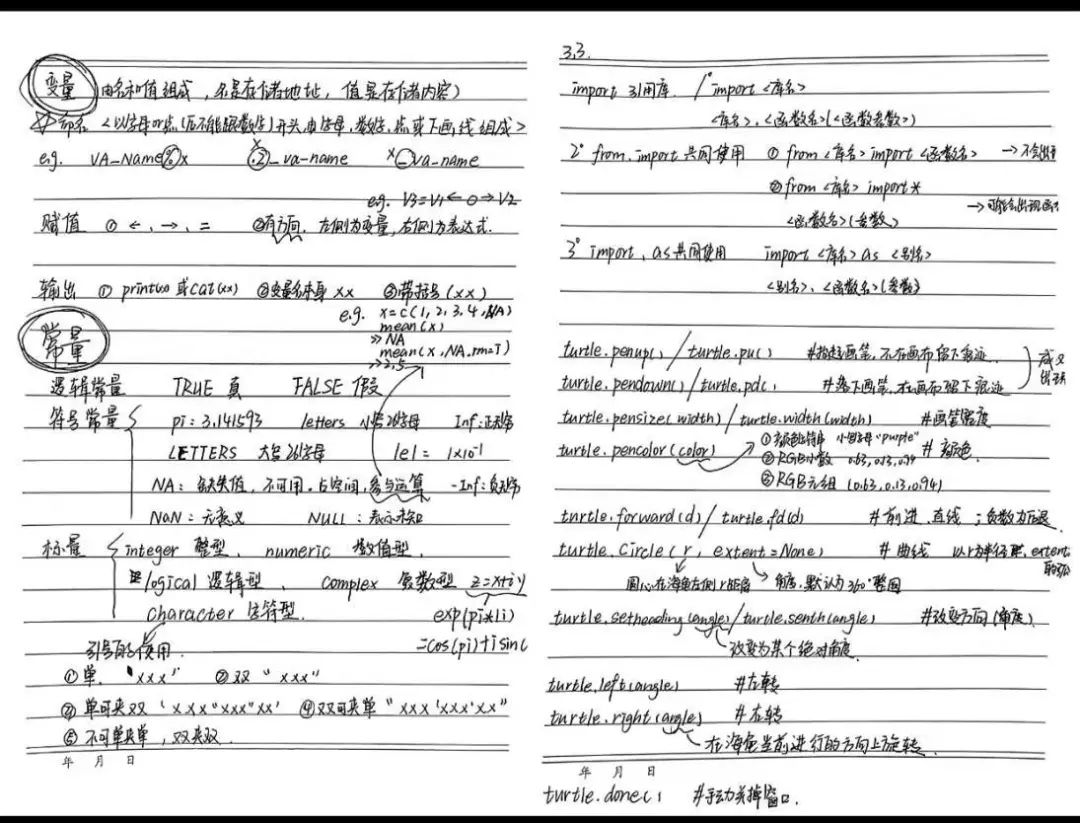 变量 由名和值组成,名是存储者地址,值是存储者内容)
命名 <以字母or点(后不能跟数字)开头,由字母,数字,点或下画线组成>
e.g. VA_Name% x .2_va-name x _va-name x
e.g. V3=V1←0→V2
赋值 ① ←、→、= ②有方向,左侧为变量,右侧为表达式.
输出 ① print(xx)或cat(xx) ②变量名本身 xx ③带括号(xx)
e.g. x=c(1,2,3,4,NA)
mean(x)
>> NA
mean(x,NA.rm=T)
>> 2.5
常量
逻辑常量 TRUE 真 FALSE 假
符号常量 pi:3.141593 letters 小写26字母 Inf:正无穷
LETTERS 大写26字母 1e1= 1×10⁻¹
NA: 缺失值,不可用,占空间,参与运算 -Inf:负无穷
NaN:无意义 NULL:表示
标量 integer 整型、numeric 数值型、
logical 逻辑型、complex 复数型 z=x+iy
character 字符型. exp(pi*1i)
=cos(pi)+isin(
引号的使用
①单. 'xxx' ②双 "xxx"
③ 单可夹双 'xxx"xxx"xx' ④双可夹单 "xxx'xxx'xx"
⑤ 不可单夹单,双夹双.
年 月 日
3.3.
import 引用库. 1° import <库名>
<库名>.<函数名>(<函数参数>)
2° from.import 共同使用 ① from <库名> import <函数名> →不会出重
② from <库名> import*
→可能会出现
<函数名>(参数)
3° import、as共同使用 import <库名> as <别名>
<别名>.<函数名>(参数)
turtle.penup() / turtle.pu() #抬起画笔,不在画布留下痕迹
turtle.pendown() / turtle.pd() #落下画笔,在画布留下痕迹
成对出现
turtle.pensize(width) / turtle.width(width) #画笔宽度
turtle.pencolor(color) #颜色
①颜色字符串 小写字母"purple"
②RGB小数 0.63,0.13,0.94
③RGB元组 (0.63,0.13,0.94)
turtle.forward(d) / turtle.fd(d) #前进、直线;负数为后退
turtle.Circle(r, extent=None) #曲线 以r为半径,extent
圆心在海龟左侧r距离 角度,默认为360°整圆
turtle.setheading(angle) / turtle.senth(angle) #改变方向(角度)
改变为某个绝对角度.
turtle.left(angle) #左转
turtle.right(angle) #右转
在海龟当前进行的方向上旋转
年 月 日
turtle.done() #手动关掉窗口.